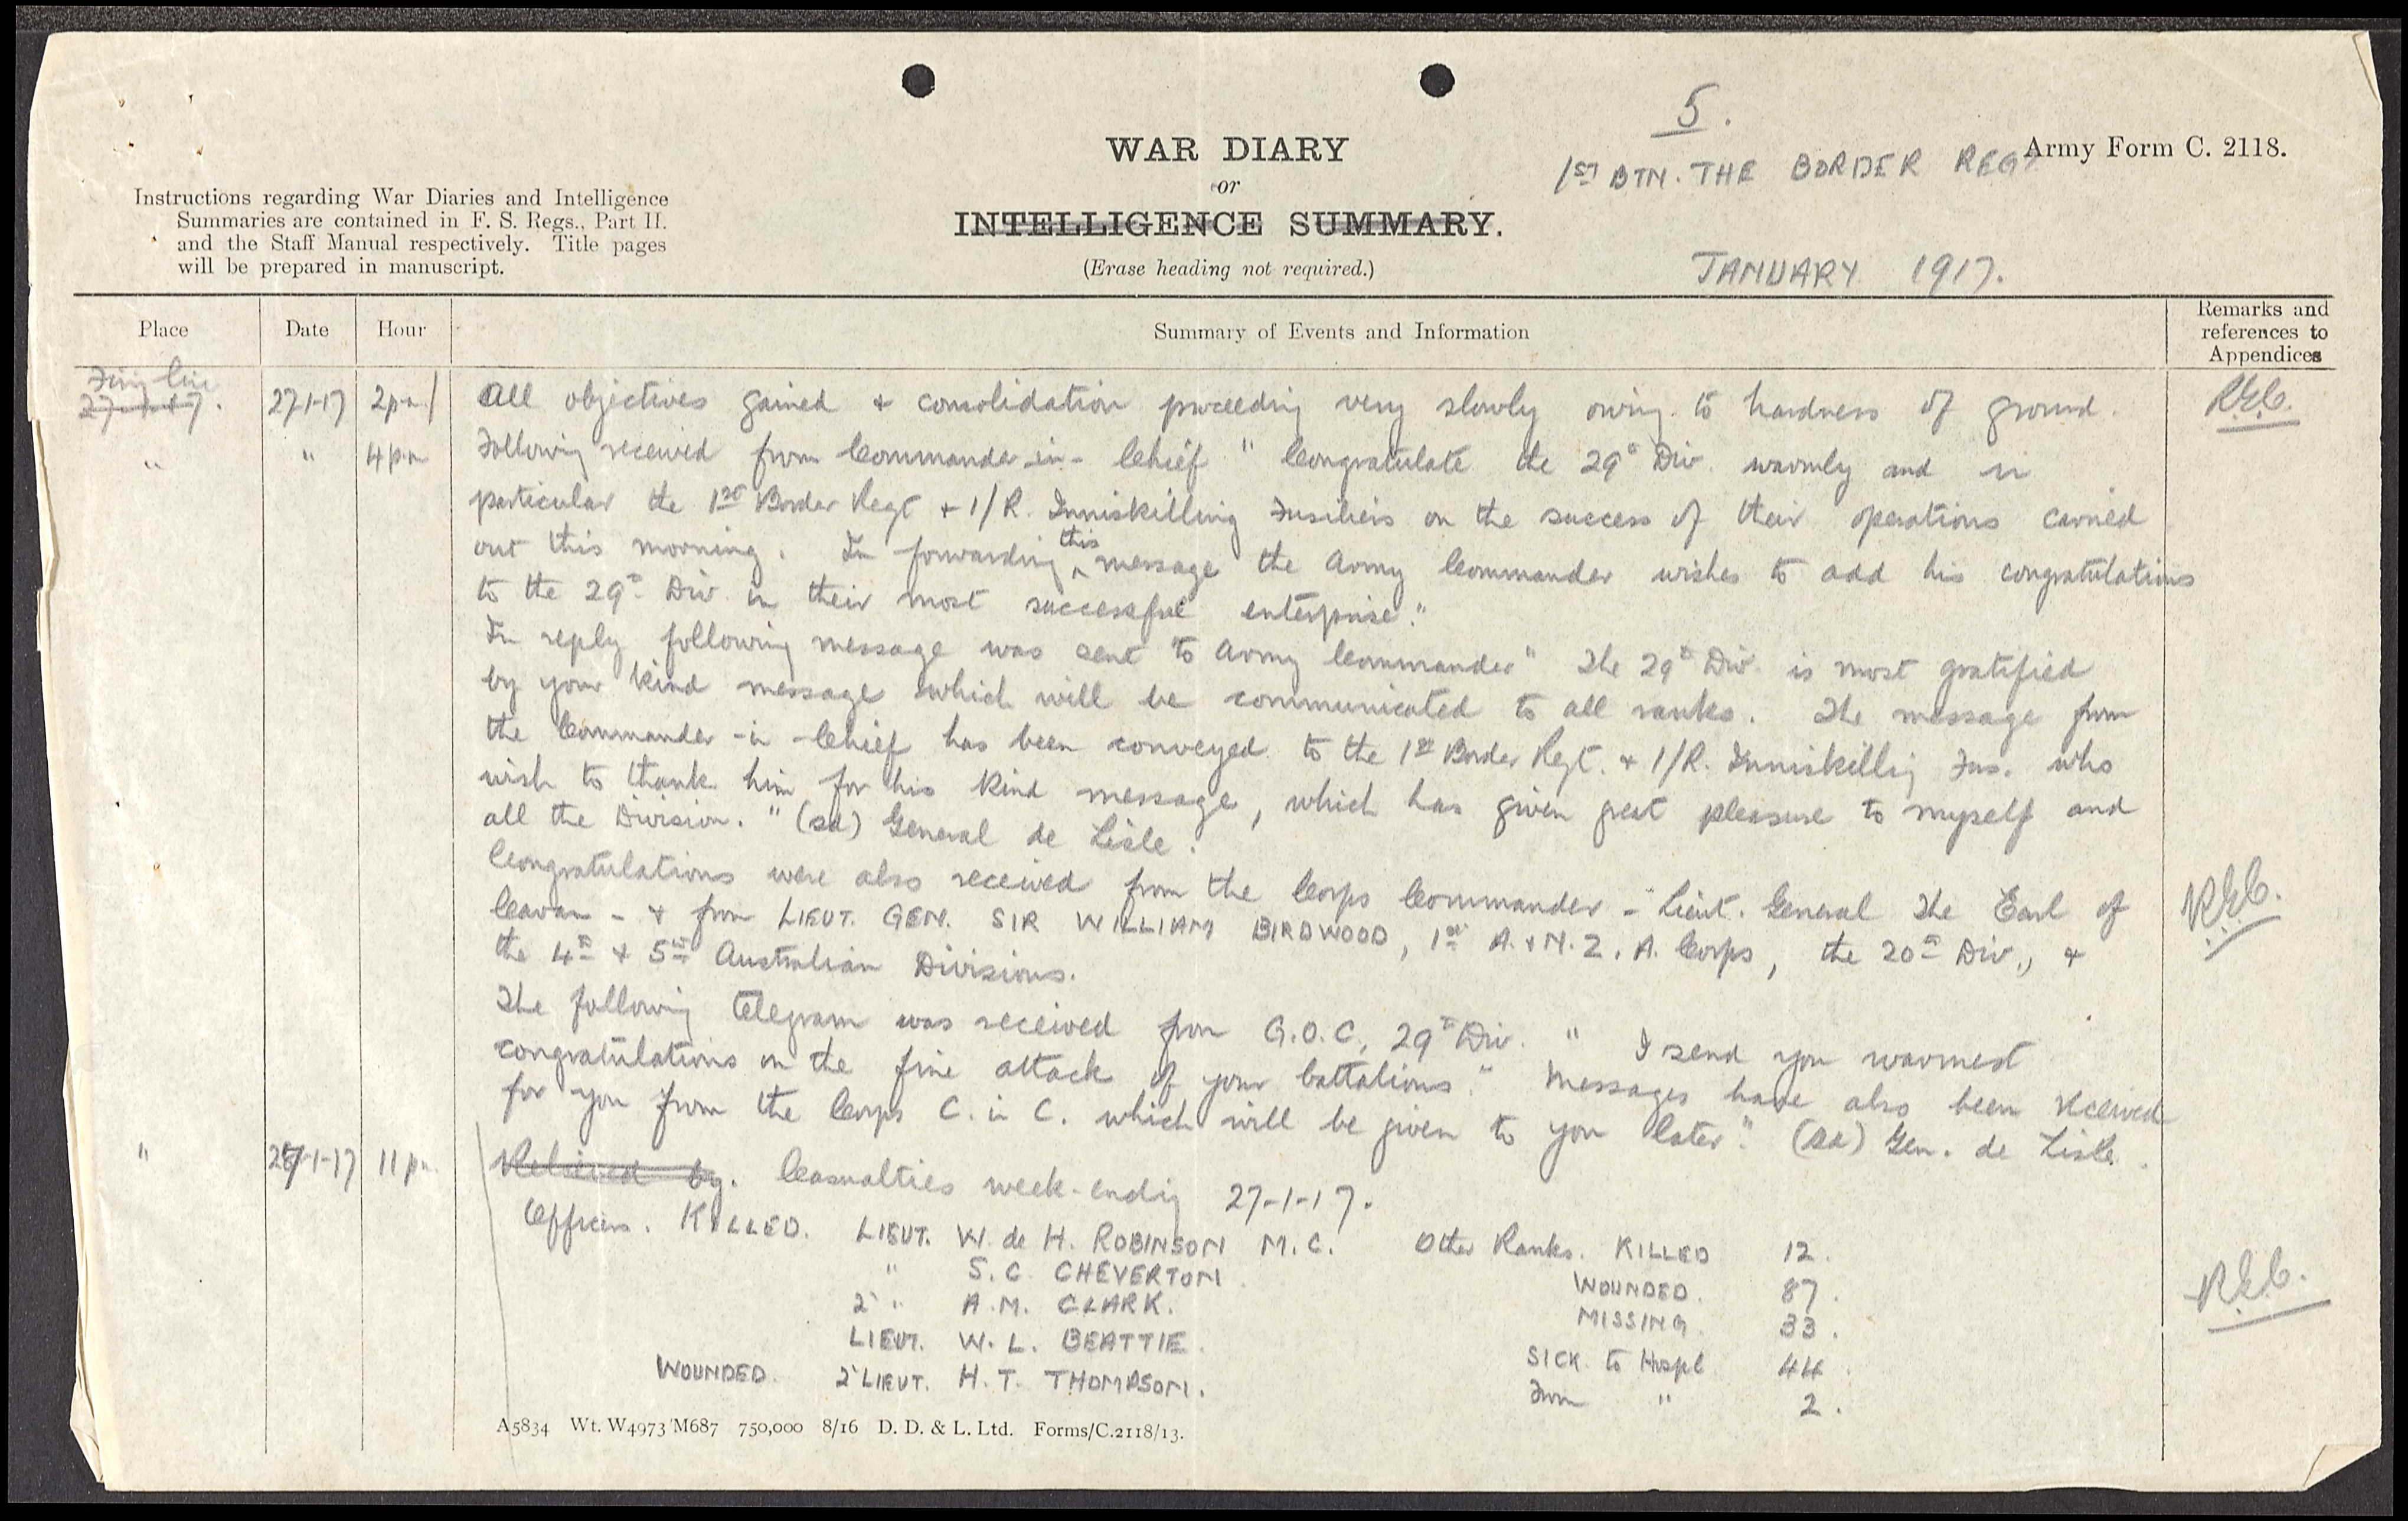 5.
Army Form C. 2118.
1ST BTN. THE BORDER REGT
WAR DIARY
or
INTELLIGENCE SUMMARY.
(Erase heading not required.)
JANUARY 1917.
Instructions regarding War Diaries and Intelligence
Summaries are contained in F. S. Regs., Part II.
and the Staff Manual respectively. Title pages
will be prepared in manuscript.
Place Date Hour Summary of Events and Information Remarks and references to Appendices
Firing line
27-1-17. 27-1-17 2pm All objectives gained + consolidation proceeding very slowly owing to hardness of ground. R.E.C.
" " 4pm Following received from Commander-in-Chief "Congratulate the 29th Div. warmly and in
particular the 1st Border Regt + 1/R. Inniskilling Fusiliers on the success of their operations carried
out this morning. In forwarding this message the Army Commander wishes to add his congratulations
to the 29th Div. in their most successful enterprise."
In reply following message was sent to Army Commander "The 29th Div. is most gratified
by your kind message which will be communicated to all ranks. The message from
the Commander-in-Chief has been conveyed to the 1st Border Regt. + 1/R. Inniskillig Fus. who
wish to thank him for his kind message, which has given great pleasure to myself and
all the Division." (sd) General de Lisle.
Congratulations were also received from the Corps Commander - Lieut. General The Earl of
Cavan - + from LIEUT. GEN. SIR WILLIAM BIRDWOOD, 1st A. + N. Z. A. Corps, the 20th Div., + R.E.C.
the 4th + 5th Australian Divisions.
The following telegram was received from G.O.C, 29th Div. " I send you warmest
congratulations on the fine attack of your battalions." Messages have also been received
for you from the Corps C. in C. which will be given to you later." (sd) Gen. de Lisle.
" 27-1-17 11pm. Relieved by. Casualties week-ending 27-1-17.
Officers. KILLED. LIEUT. W. de H. ROBINSON M.C. Other Ranks. KILLED 12.
" S.C. CHEVERTON. WOUNDED. 87.
2" " A.M. CLARK. MISSING. 33.
LIEUT. W. L. BEATTIE. SICK to Hospl 44.
WOUNDED. 2"LIEUT. H. T. THOMPSON. From " 2.
R.E.C.
A5834 Wt. W4973/M687 750,000 8/16 D. D. & L. Ltd. Forms/C.2118/13.